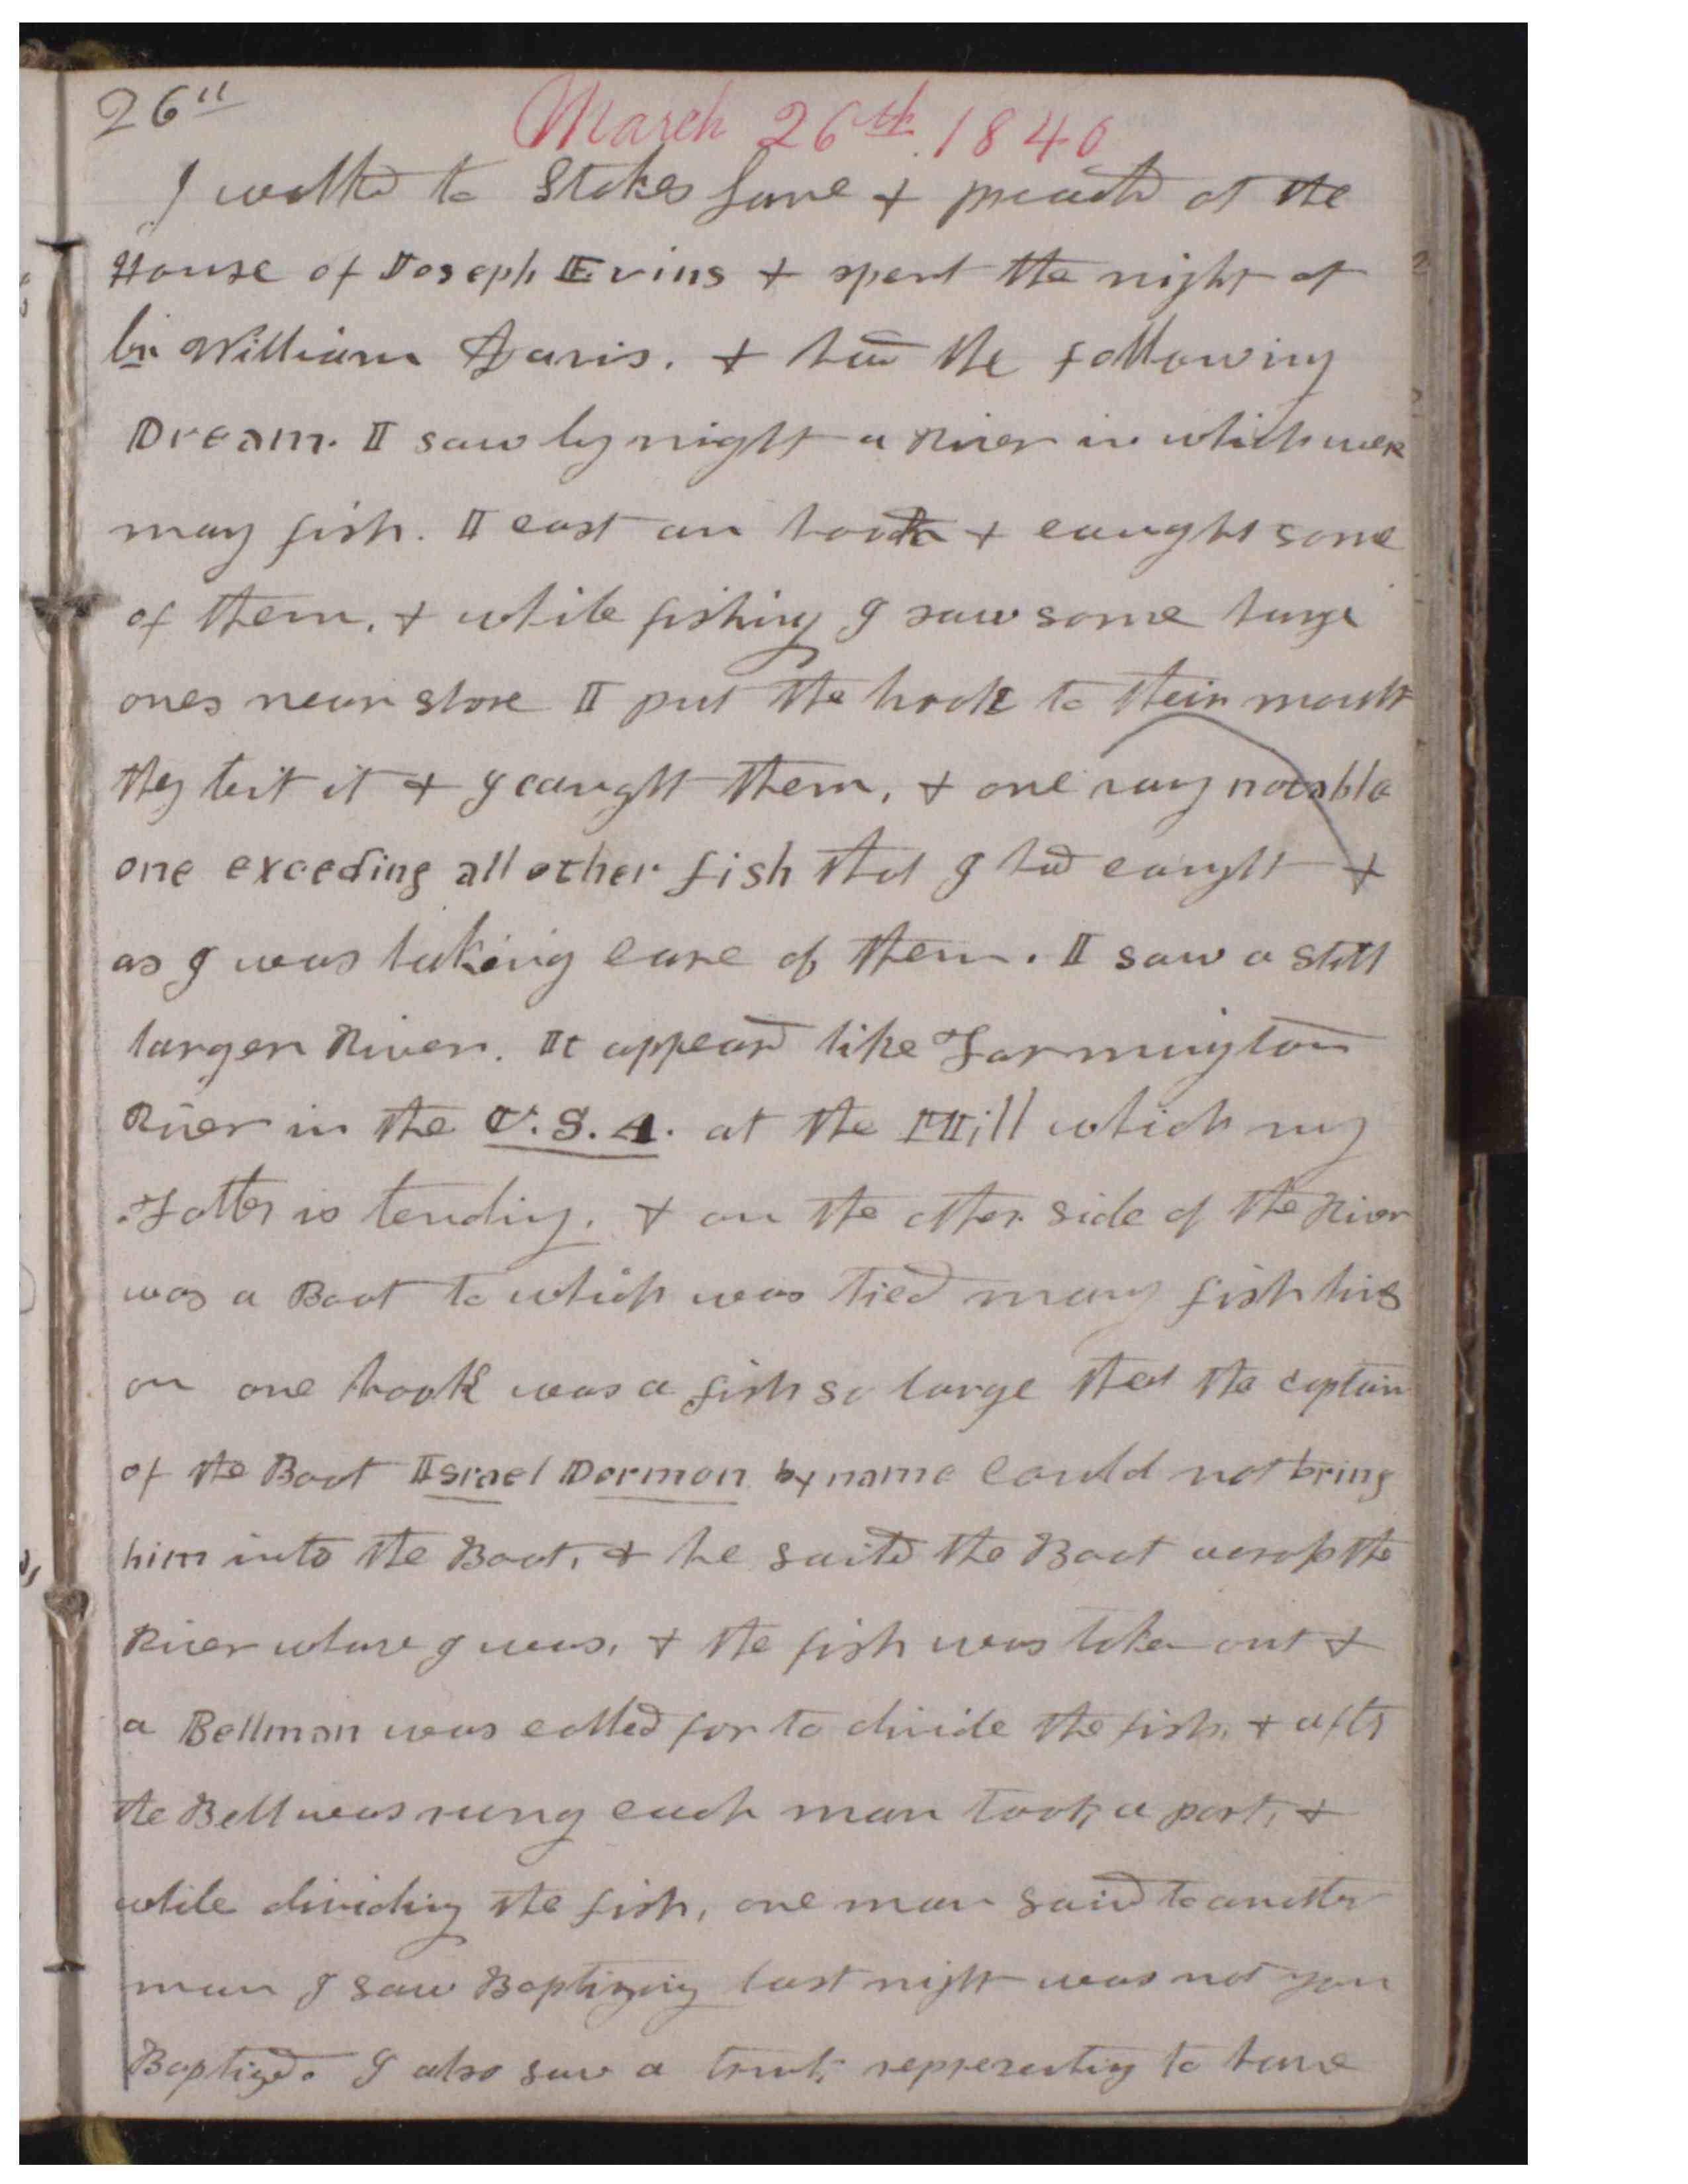 26"
March 26th. 1840
I walkd to Stokes Lane & preachd at the
House of Joseph Evins & spent the night at
br William Davis. & had the following
Dream. I saw by night a River in which were
many fish. I cast an hook & caught some
of them, & while fishing I saw some large
ones near shore I put the hook to their mouth
they bit it & I caught them, & one vary notable
one exceeding all other fish that I had caught &
as I was taking care of them. I saw a still
larger River. It appeard like Farmington
River in the U.S.A. at the Mill which my
Father is tending. & on the other side of the River
was a Boat to which was tied many fish lins
on one hook was a fish so large that the captain
of the Boat Israel Dormon by name could not bring
him into the Boat, & he saild the Boat across the
River whare I was, & the fish was taken out &
a Bellman was called for to divide the fish, & after
the Bell was rung each man took a part, &
while dividing the fish, one man said to another
man I saw Baptizing last night was not you
Baptized. I also saw a trunk representing to have